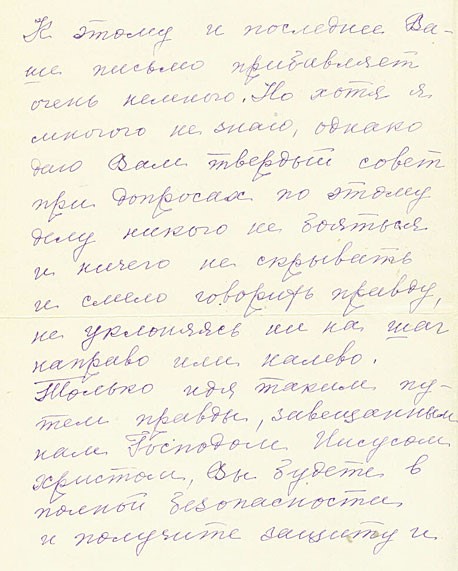 К этому и последнее Ва-
ше письмо прибавляет
очень немного. Но хотя я
многого не знаю, однако
даю Вам твердый совет
при допросах по этому
делу никого не бояться
и ничего не скрывать
и смело говорить правду,
не уклоняясь ни на шаг
направо или налево.
Только идя таким пу-
тем правды, завещанным
нам Господом Иисусом
Христом, Вы будете в
полной безопасности
и получите защиту и